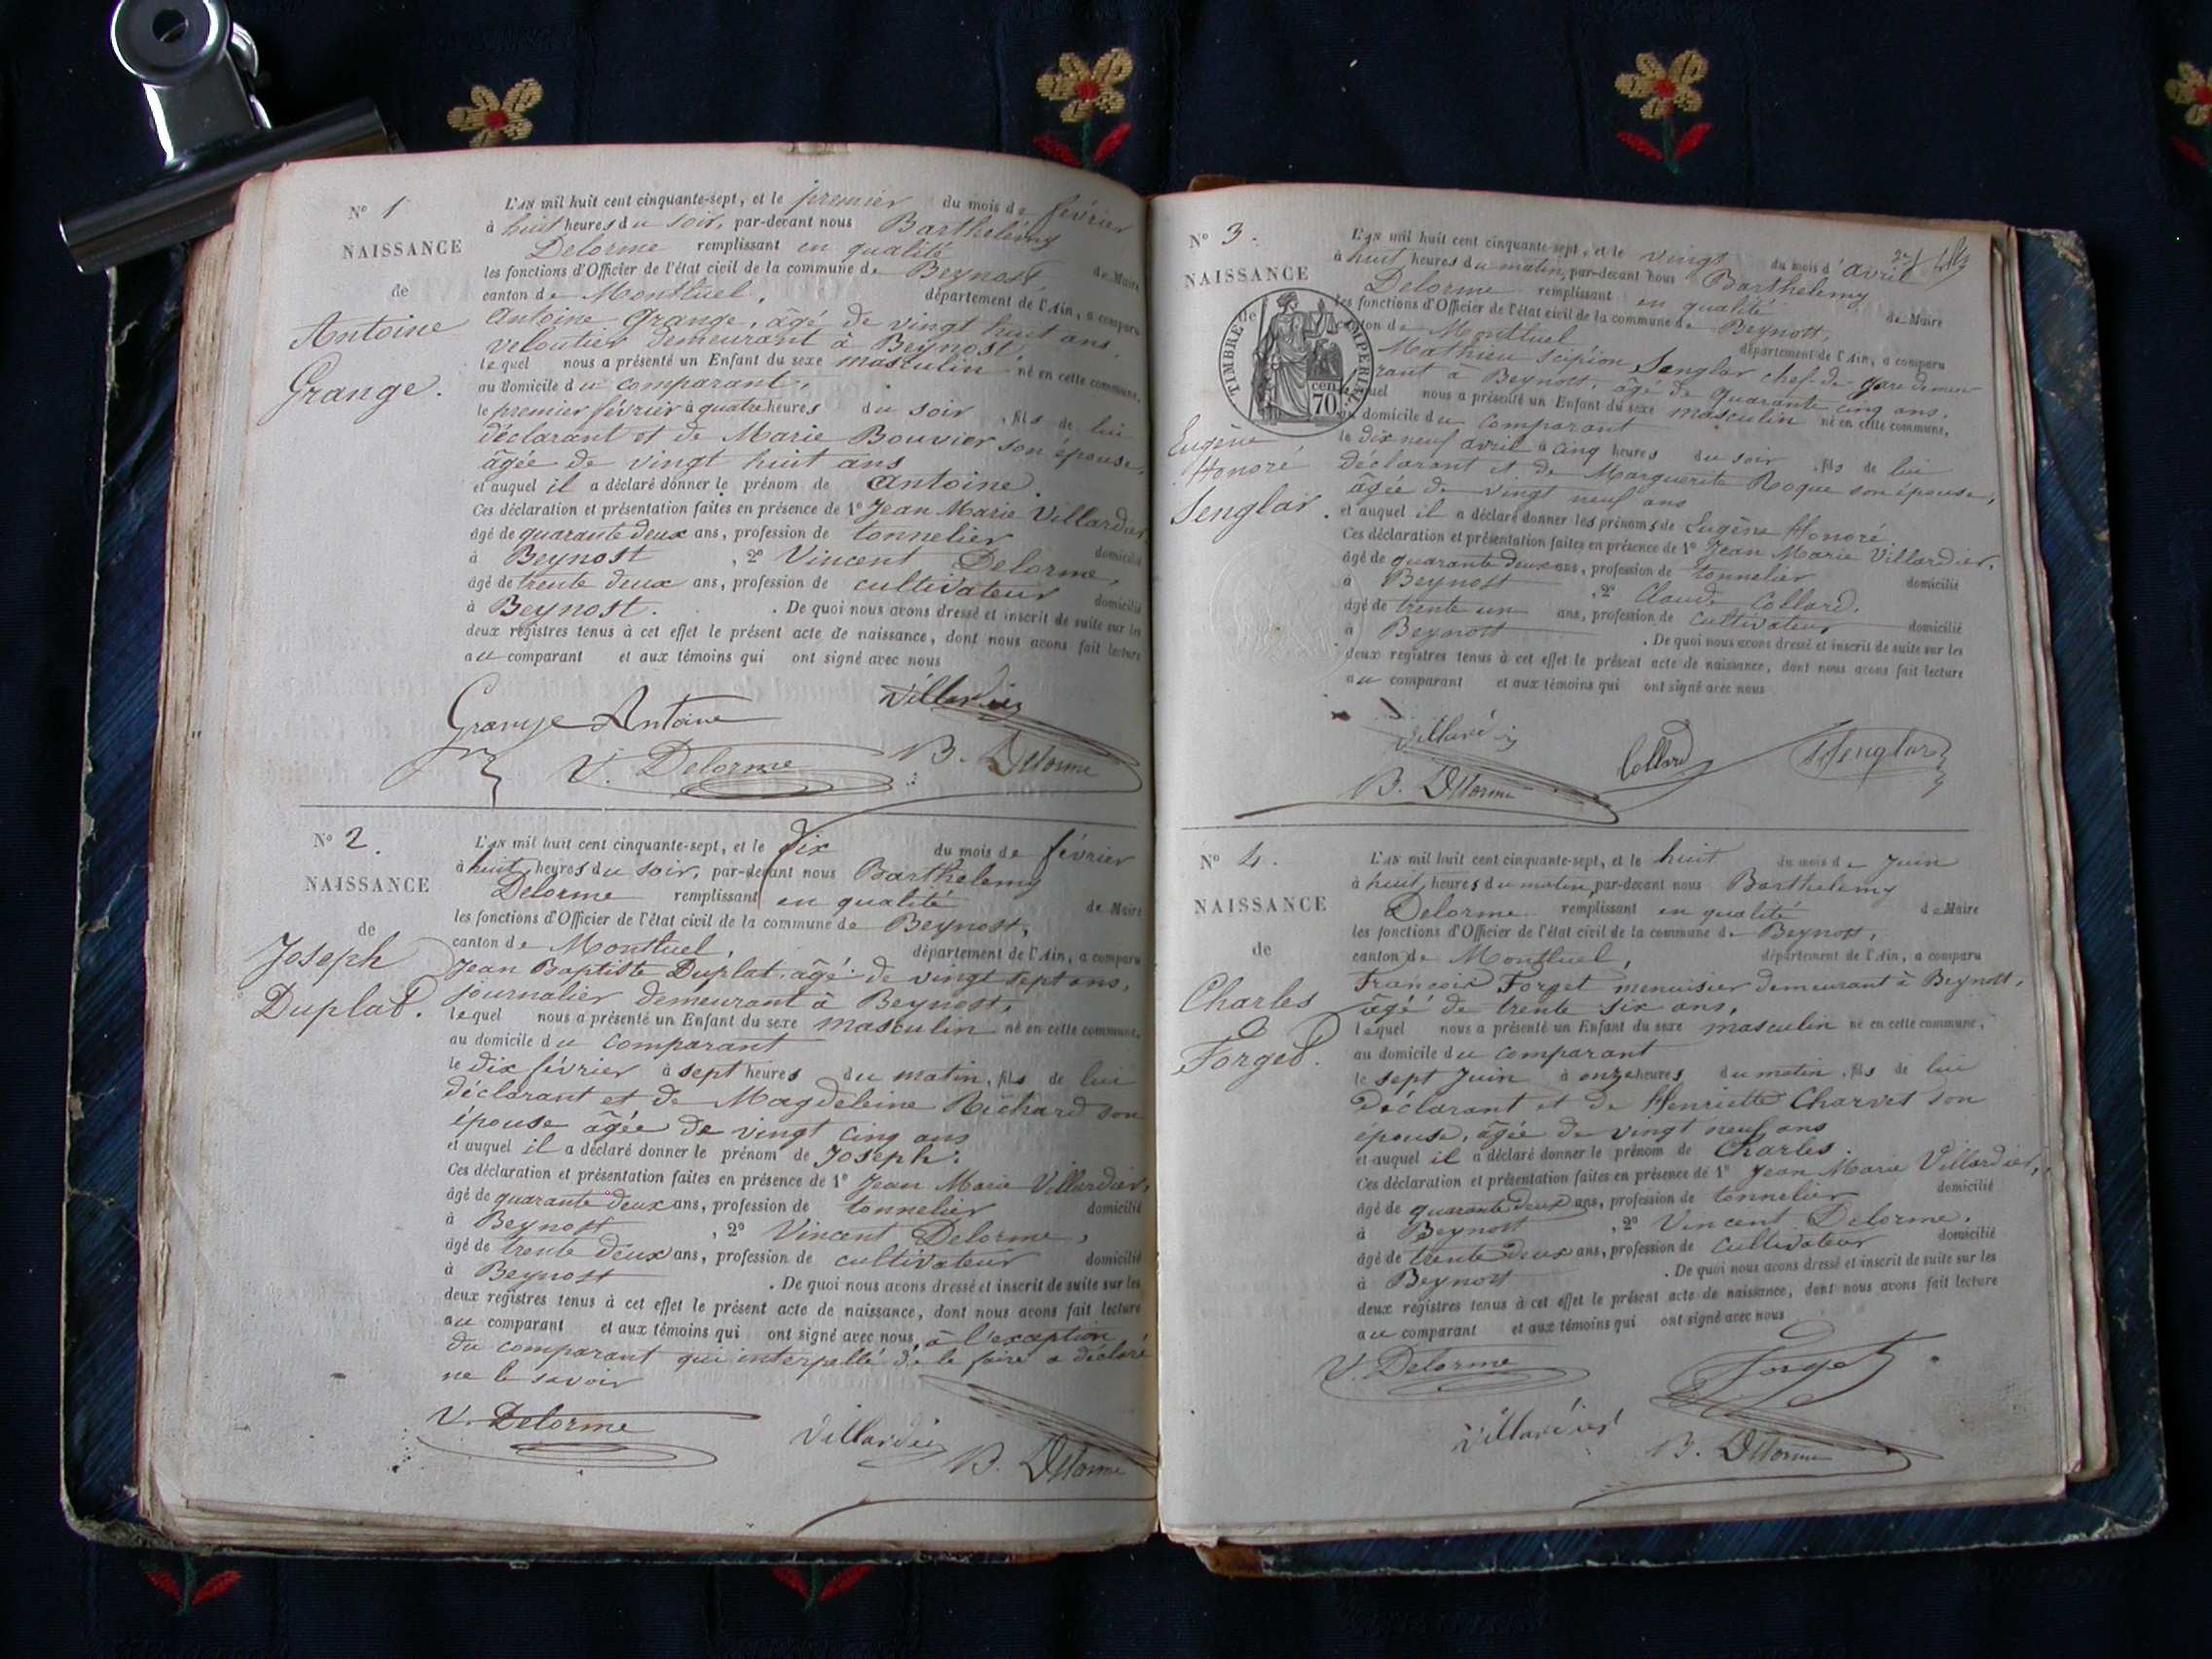 N° 1
NAISSANCE
de
Antoine
Grange.
L'AN mil huit cent cinquante-sept, et le premier du mois de février
à huit heures du soir, par-devant nous Barthélemy
Delorme remplissant en qualité de Maire
les fonctions d'Officier de l'état civil de la commune de Beynost,
canton de Montluel, département de l'Ain, a comparu
Antoine Grange, âgé de vingt huit ans,
veloutier demeurant à Beynost
lequel nous a présenté un Enfant du sexe masculin né en cette commune,
au domicile du comparant,
le premier février à quatre heures du soir, fils de lui
déclarant et de Marie Bouvier son épouse,
âgée de vingt huit ans
et auquel il a déclaré donner le prénom de Antoine.
Ces déclaration et présentation faites en présence de 1° Jean Marie Villardier
âgé de quarante deux ans, profession de tonnelier domicilié
à Beynost, 2° Vincent Delorme,
âgé de trente deux ans, profession de cultivateur domicilié
à Beynost. De quoi nous avons dressé et inscrit de suite sur les
deux registres tenus à cet effet le présent acte de naissance, dont nous avons fait lecture
au comparant et aux témoins qui ont signé avec nous
Grange Antoine Villardier
V. Delorme B. Delorme
N° 2.
NAISSANCE
de
Joseph
Duplat.
L'AN mil huit cent cinquante-sept, et le dix du mois de février
à huit heures du soir, par-devant nous Barthelemy
Delorme remplissant en qualité de Maire
les fonctions d'Officier de l'état civil de la commune de Beynost,
canton de Montluel, département de l'Ain, a comparu
Jean Baptiste Duplat âgé de vingt sept ans,
journalier demeurant à Beynost,
lequel nous a présenté un Enfant du sexe masculin né en cette commune,
au domicile du comparant
le dix février à sept heures du matin, fils de lui
déclarant et de Magdeleine Richard son
épouse âgée de vingt cinq ans
et auquel il a déclaré donner le prénom de Joseph.
Ces déclaration et présentation faites en présence de 1° Jean Marie Villardier,
âgé de quarante deux ans, profession de tonnelier domicilié
à Beynost, 2° Vincent Delorme,
âgé de trente deux ans, profession de cultivateur domicilié
à Beynost. De quoi nous avons dressé et inscrit de suite sur les
deux registres tenus à cet effet le présent acte de naissance, dont nous avons fait lecture
au comparant et aux témoins qui ont signé avec nous, à l'exception
du comparant qui interpellé de le faire a déclaré
ne le savoir
V. Delorme Villardier B. Delorme
N° 3.
NAISSANCE
de
TIMBRE IMPERIAL
cen
70
Eugène
Honoré
Senglar.
L'AN mil huit cent cinquante-sept, et le vingt du mois d'avril
à huit heures du matin, par-devant nous Barthelemy
Delorme remplissant en qualité de Maire
les fonctions d'Officier de l'état civil de la commune de Beynost,
canton de Montluel département de l'Ain, a comparu
Mathieu Scipion Senglar chef de gare demeu
rant à Beynost, âgé de quarante cinq ans,
lequel nous a présenté un Enfant du sexe masculin né en cette commune,
au domicile du comparant
le dix neuf avril à cinq heures du soir, fils de lui
déclarant et de Marguerite Roque son épouse,
âgée de vingt neuf ans
et auquel il a déclaré donner les prénoms de Eugène Honoré
Ces déclaration et présentation faites en présence de 1° Jean Marie Villardier,
âgé de quarante deux ans, profession de tonnelier domicilié
à Beynost, 2° Claude Collard,
âgé de trente un ans, profession de cultivateur domicilié
à Beynost. De quoi nous avons dressé et inscrit de suite sur les
deux registres tenus à cet effet le présent acte de naissance, dont nous avons fait lecture
au comparant et aux témoins qui ont signé avec nous
Villardier Collard Senglar
B. Delorme
N° 4.
NAISSANCE
de
Charles
Forget.
L'AN mil huit cent cinquante-sept, et le huit du mois de Juin
à huit heures du matin, par-devant nous Barthelemy
Delorme remplissant en qualité de Maire
les fonctions d'Officier de l'état civil de la commune de Beynost,
canton de Montluel, département de l'Ain, a comparu
François Forget menuisier demeurant à Beynost,
âgé de trente six ans,
lequel nous a présenté un Enfant du sexe masculin né en cette commune,
au domicile du comparant
le sept Juin à onze heures du matin, fils de lui
déclarant et de Henriette Charvet son
épouse, âgée de vingt neuf ans
et auquel il a déclaré donner le prénom de Charles.
Ces déclaration et présentation faites en présence de 1° Jean Marie Villardier,
âgé de quarante deux ans, profession de tonnelier domicilié
à Beynost, 2° Vincent Delorme,
âgé de trente deux ans, profession de cultivateur domicilié
à Beynost. De quoi nous avons dressé et inscrit de suite sur les
deux registres tenus à cet effet le présent acte de naissance, dont nous avons fait lecture
au comparant et aux témoins qui ont signé avec nous
V. Delorme Forget
Villardier B. Delorme